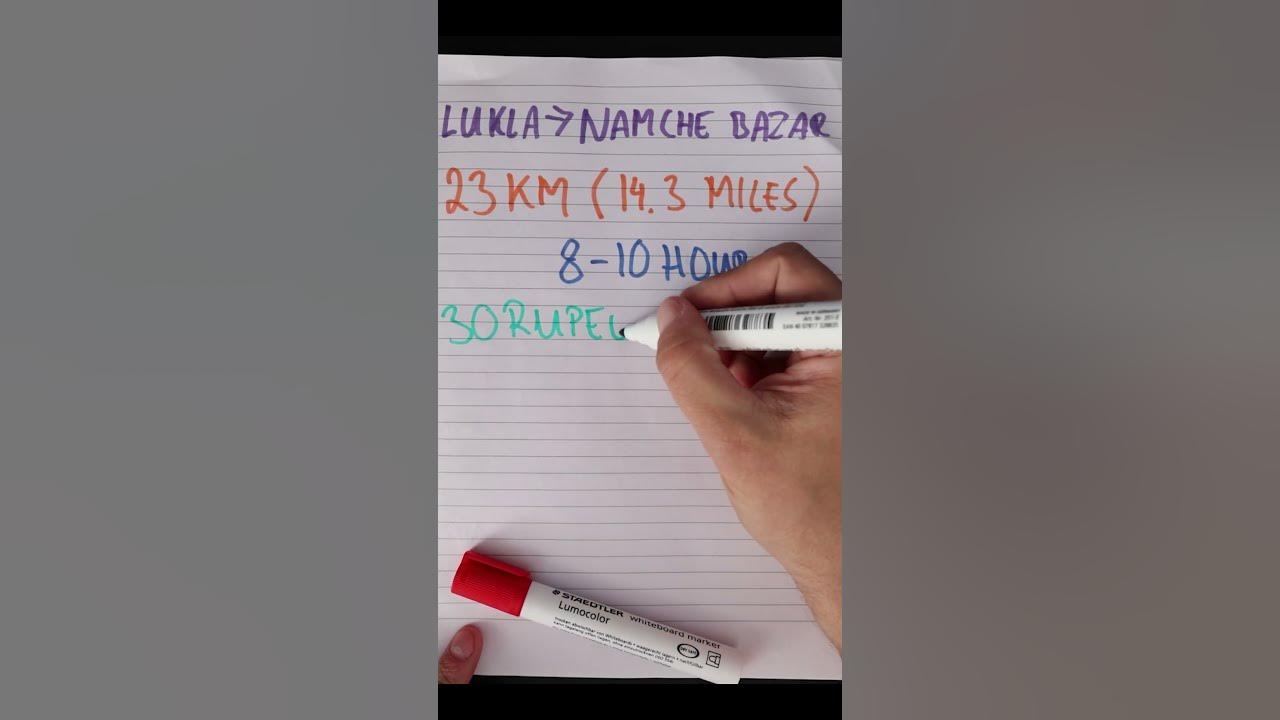 LUKLA→NAMCHE BAZAR
23 KM (14.3 MILES)
8-10 HOUR
30 RUPE
STAEDTLER whiteboard marker
Lumocolor